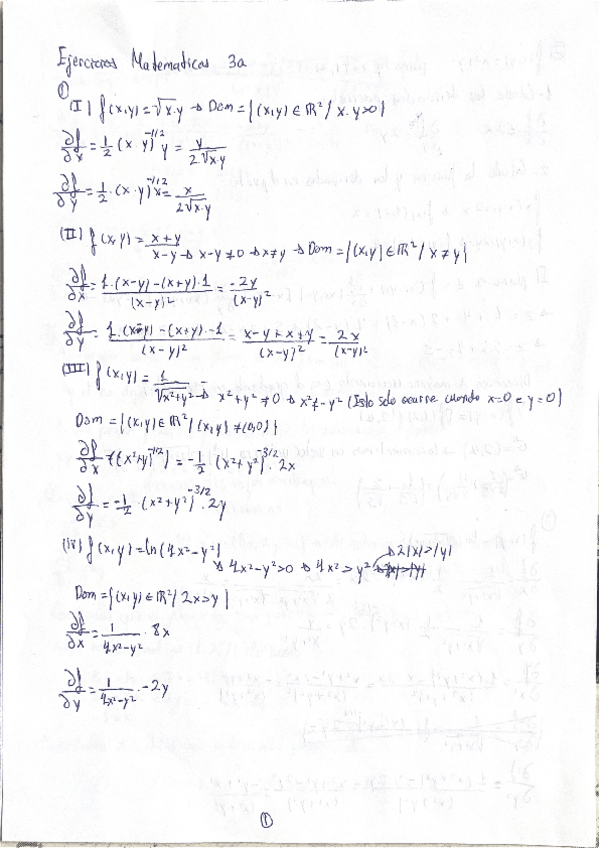 Ejercicios Matematicas 3a
①
(I) f(x,y)=√x·y → Dom={(x,y)∈ℝ²/ x·y>0}
∂f/∂x=1/2·(x·y)^-1/2 y=y/2√x·y
∂f/∂y=1/2·(x·y)^-1/2 x=x/2√x·y
(II) f(x,y)=x+y/x-y → x-y≠0 → x≠y → Dom={(x,y)∈ℝ²/ x≠y}
∂f/∂x=1·(x-y)-(x+y)·1/(x-y)²=-2y/(x-y)²
∂f/∂y=1·(x-y)-(x+y)·-1/(x-y)²=x-y+x+y/(x-y)²=2x/(x-y)²
(III) f(x,y)=1/√x²+y² → x²+y²≠0 → x²≠-y² (Esto solo ocurre cuando x=0 e y=0)
Dom={(x,y)∈ℝ²/(x,y)≠(0,0)}
∂f/∂x=((x²+y²)^-1/2)=-1/2·(x²+y²)^-3/2·2x
∂f/∂y=-1/2·(x²+y²)^-3/2·2y
(IV) f(x,y)=ln(4x²-y²)
→ 4x²-y²>0 → 4x²>y² → 2|x|>|y|
Dom={(x,y)∈ℝ²/ 2x>y}
∂f/∂x=1/4x²-y²·8x
∂f/∂y=1/4x²-y²·-2y
①